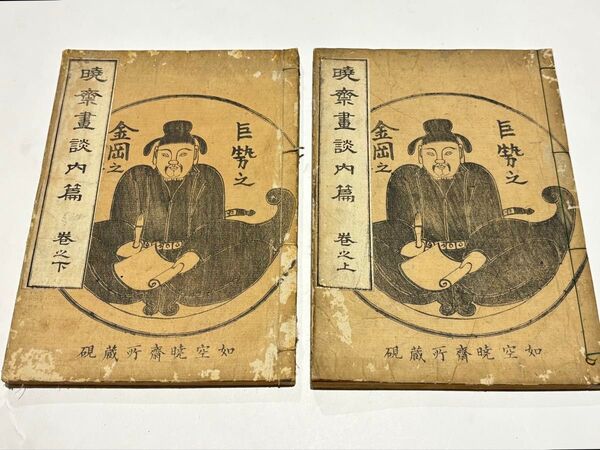 暁齋畫談内篇 巻之上
巨勢之
金岡之
如空暁齋所蔵硯
暁齋畫談内篇 巻之下
巨勢之
金岡之
如空暁齋所蔵硯